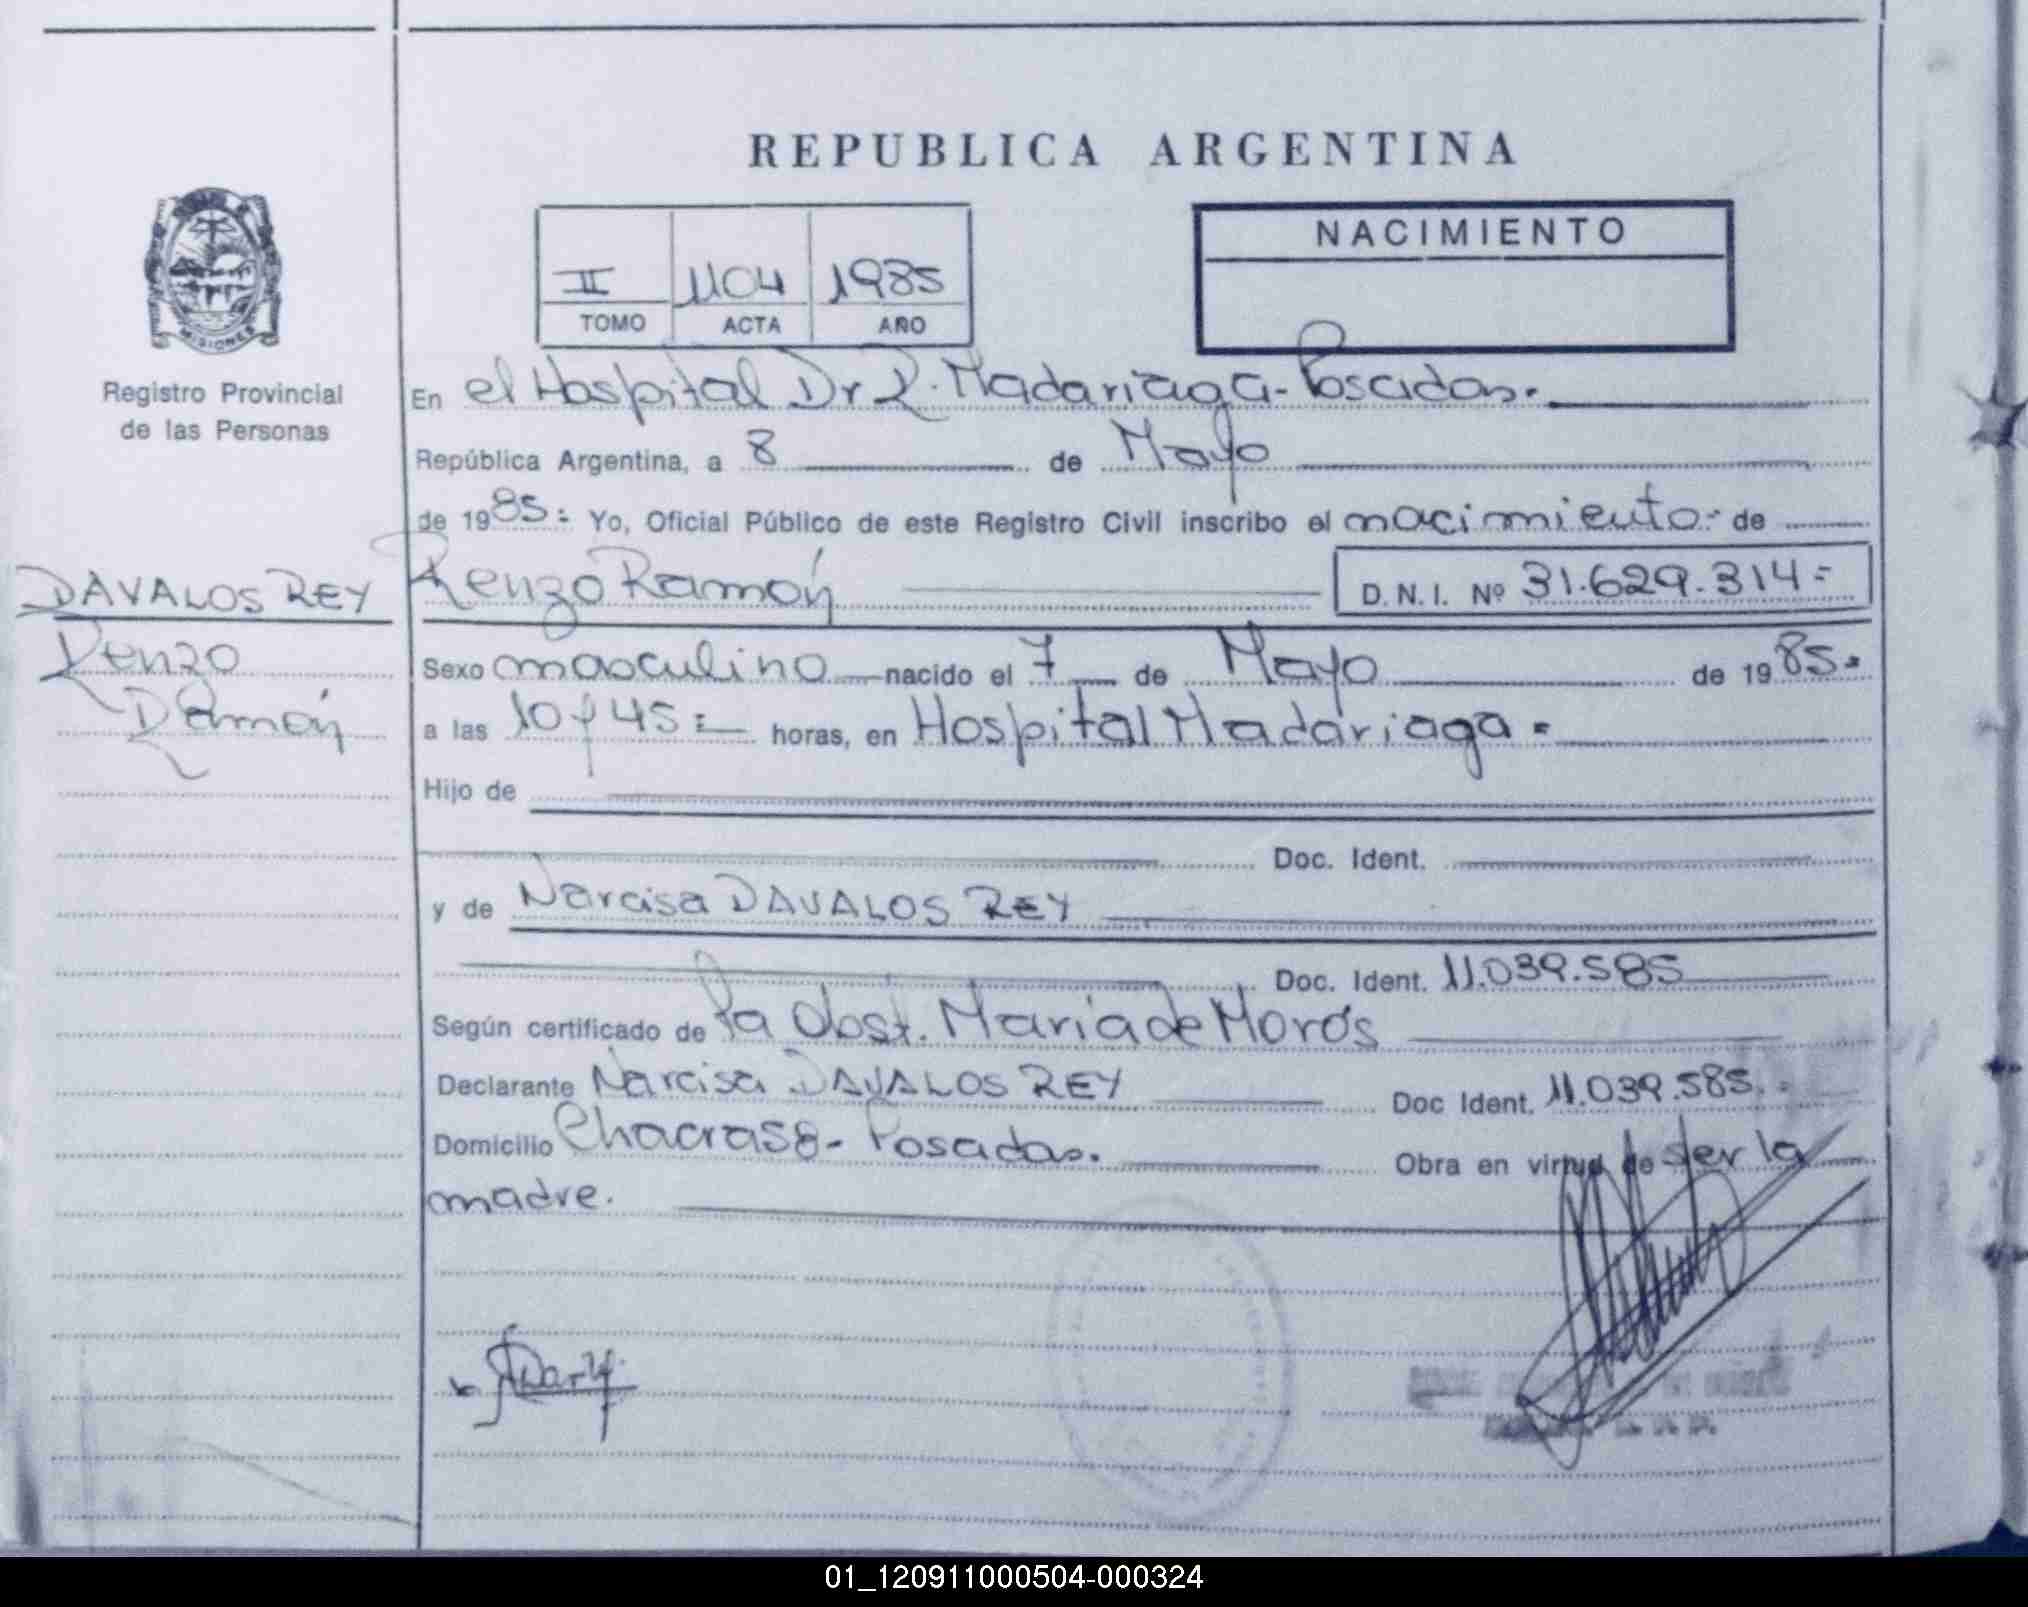 REPUBLICA ARGENTINA
NACIMIENTO
II 1104 1985
TOMO ACTA AÑO
MISIONES
Registro Provincial
de las Personas
En el Hospital Dr R. Madariaga - Posadas.
República Argentina, a 8 de Mayo
de 1985 = Yo, Oficial Público de este Registro Civil inscribo el nacimiento - de
DAVALOS REY
Renzo
Ramón
Renzo Ramón D.N.I. Nº 31.629.314 =
Sexo masculino nacido el 7 de Mayo de 1985 =
a las 10 y 45 = horas, en Hospital Madariaga =
Hijo de
Doc. Ident.
y de Narcisa DAVALOS REY
Doc. Ident. 11.039.585
Según certificado de la Obst. María de Morós
Declarante Narcisa DAVALOS REY Doc Ident. 11.039.585.
Domicilio Chacra 58 - Posadas. Obra en virtud de ser la
madre.
01_120911000504-000324